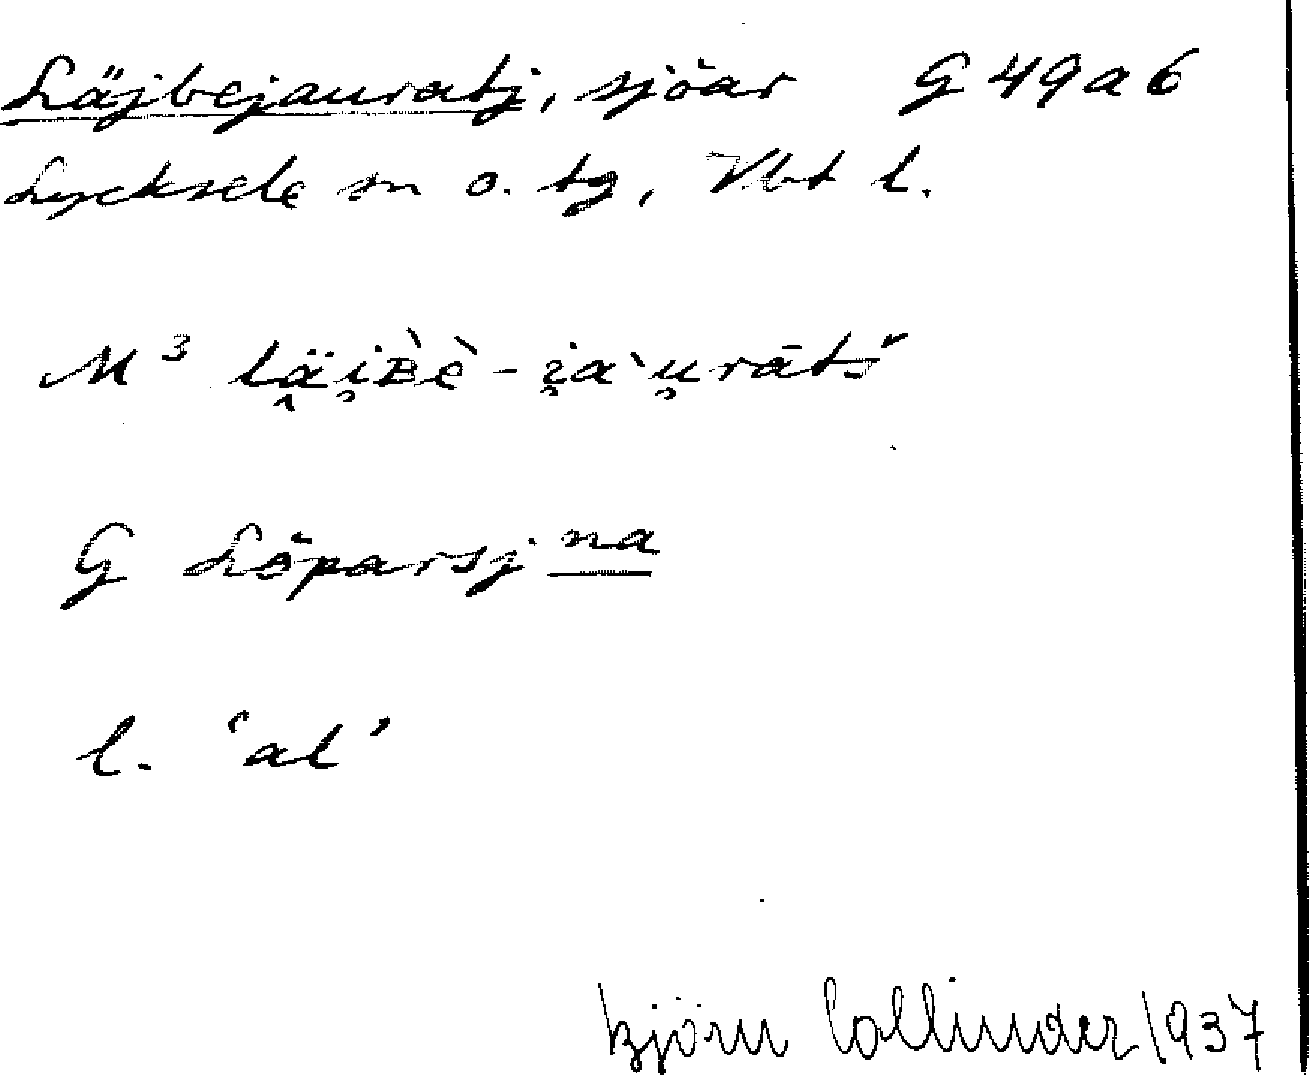 Läjbejauratj, sjöar G 49 a 6
Lycksele sn o. tg, Vbt l.
M³ lä̭i̯ʙ̀è-i̯a`u̯rātś
G Löparsjna
l. 'al'
Björn Collinder 1937